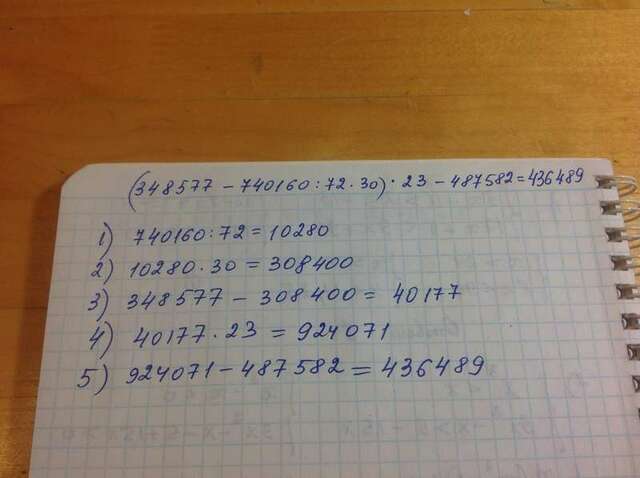 (348577 - 740160 : 72 · 30) · 23 - 487582 = 436489
1) 740160 : 72 = 10280
2) 10280 · 30 = 308400
3) 348577 - 308400 = 40177
4) 40177 · 23 = 924071
5) 924071 - 487582 = 436489